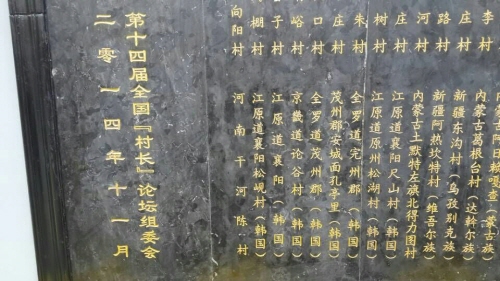 李村
村
路村
河村
庄村
树村
朱村
庄村
口村
峪村
子村
棚村
向阳村
内蒙古葛根台村（达斡尔族
新疆东沟村（乌孜别克族
新疆阿热坎特村（维吾尔族
内蒙古土默特左旗北得力图村
江原道襄阳尺山村（韩国）
江原道原州松湖村（韩国）
全罗道完州郡（韩国）
茂州郡安城面孔亭里（韩国）
全罗道茂州郡（韩国）
京畿道论谷村（韩国）
江原道襄阳（韩国）
江原道襄阳松岘村（韩国）
河南干河陈村
第十四届全国『村长』论坛组委会
二零一四年十一月